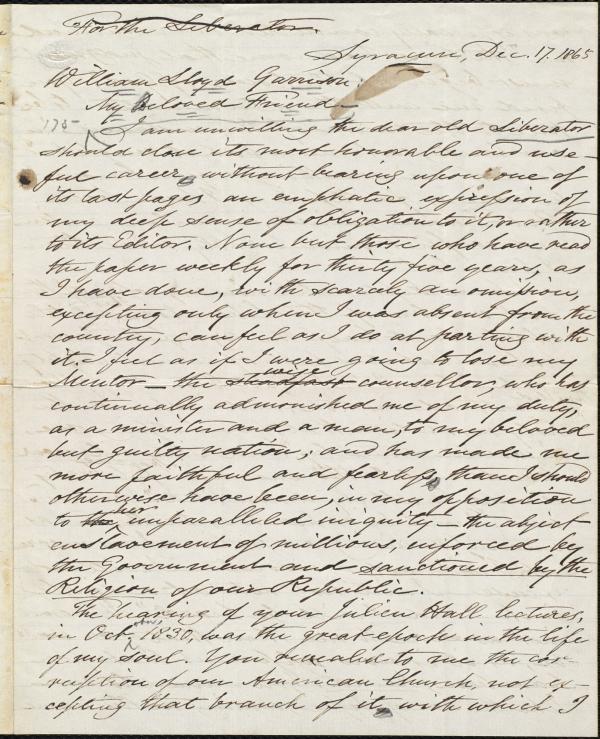 For the Liberator.
Syracuse, Dec. 17. 1865
William Lloyd Garrison,
My Beloved Friend—
175— I am unwilling the dear old Liberator
should close its most honorable and use-
ful career, without bearing upon one of
its last pages an emphatic expression of
my deep sense of obligation to it, or rather
to its Editor. None but those who have read
the paper weekly for thirty five years, as
I have done, with scarcely an omission,
excepting only when I was absent from the
country, can feel as I do at parting with
it. I feel as if I were going to lose my
Mentor—the steadfast wise counsellor, who has
continually admonished me of my duty,
as a minister and a man, to my beloved
but guilty nation; and has made me
more faithful and fearless, than I should
otherwise have been, in my opposition
to her unparalleled iniquity—the abject
enslavement of millions, inforced by
the Government and sanctioned by the
Religion of our Republic.
The hearing of your Julien Hall lectures,
in Octr. 1830, was the great epoch in the life
of my soul. You revealed to me the cor-
ruption of our American Church, not ex-
cepting that branch of it, with which I